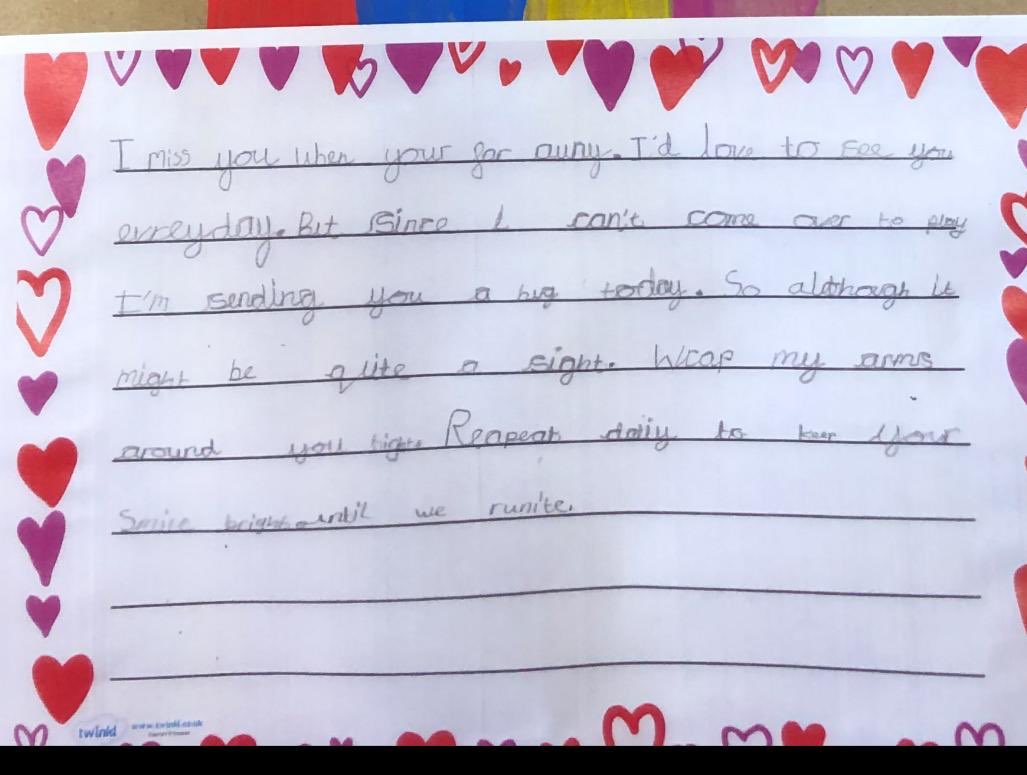 I miss you when your far auny. I'd love to see you
evreyday. But Since I can't come over to play
I'm sending you a hug today. So aldthough it
might be quite a sight. Wrap my arms
around you tight. Reapeat daily to keep your
Smile bright until we runite.
twinkl www.twinkl.co.uk